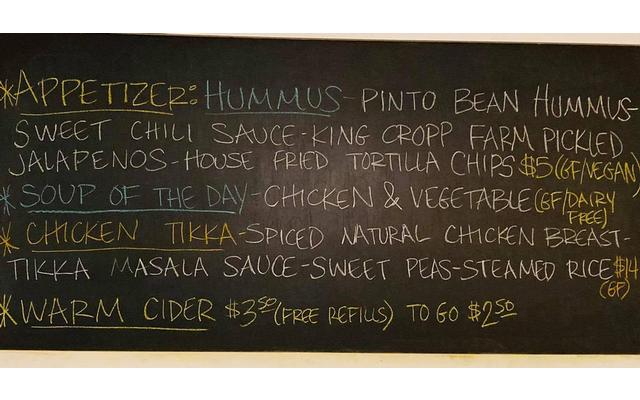 *APPETIZER: HUMMUS-PINTO BEAN HUMMUS-
SWEET CHILI SAUCE-KING CROPP FARM PICKLED
JALAPENOS-HOUSE FRIED TORTILLA CHIPS $5 (GF/VEGAN)
* SOUP OF THE DAY-CHICKEN & VEGETABLE (GF/DAIRY
FREE)
* CHICKEN TIKKA-SPICED NATURAL CHICKEN BREAST-
TIKKA MASALA SAUCE-SWEET PEAS-STEAMED RICE $14
(GF)
* WARM CIDER $3.50 (FREE REFILLS) TO GO $2.50